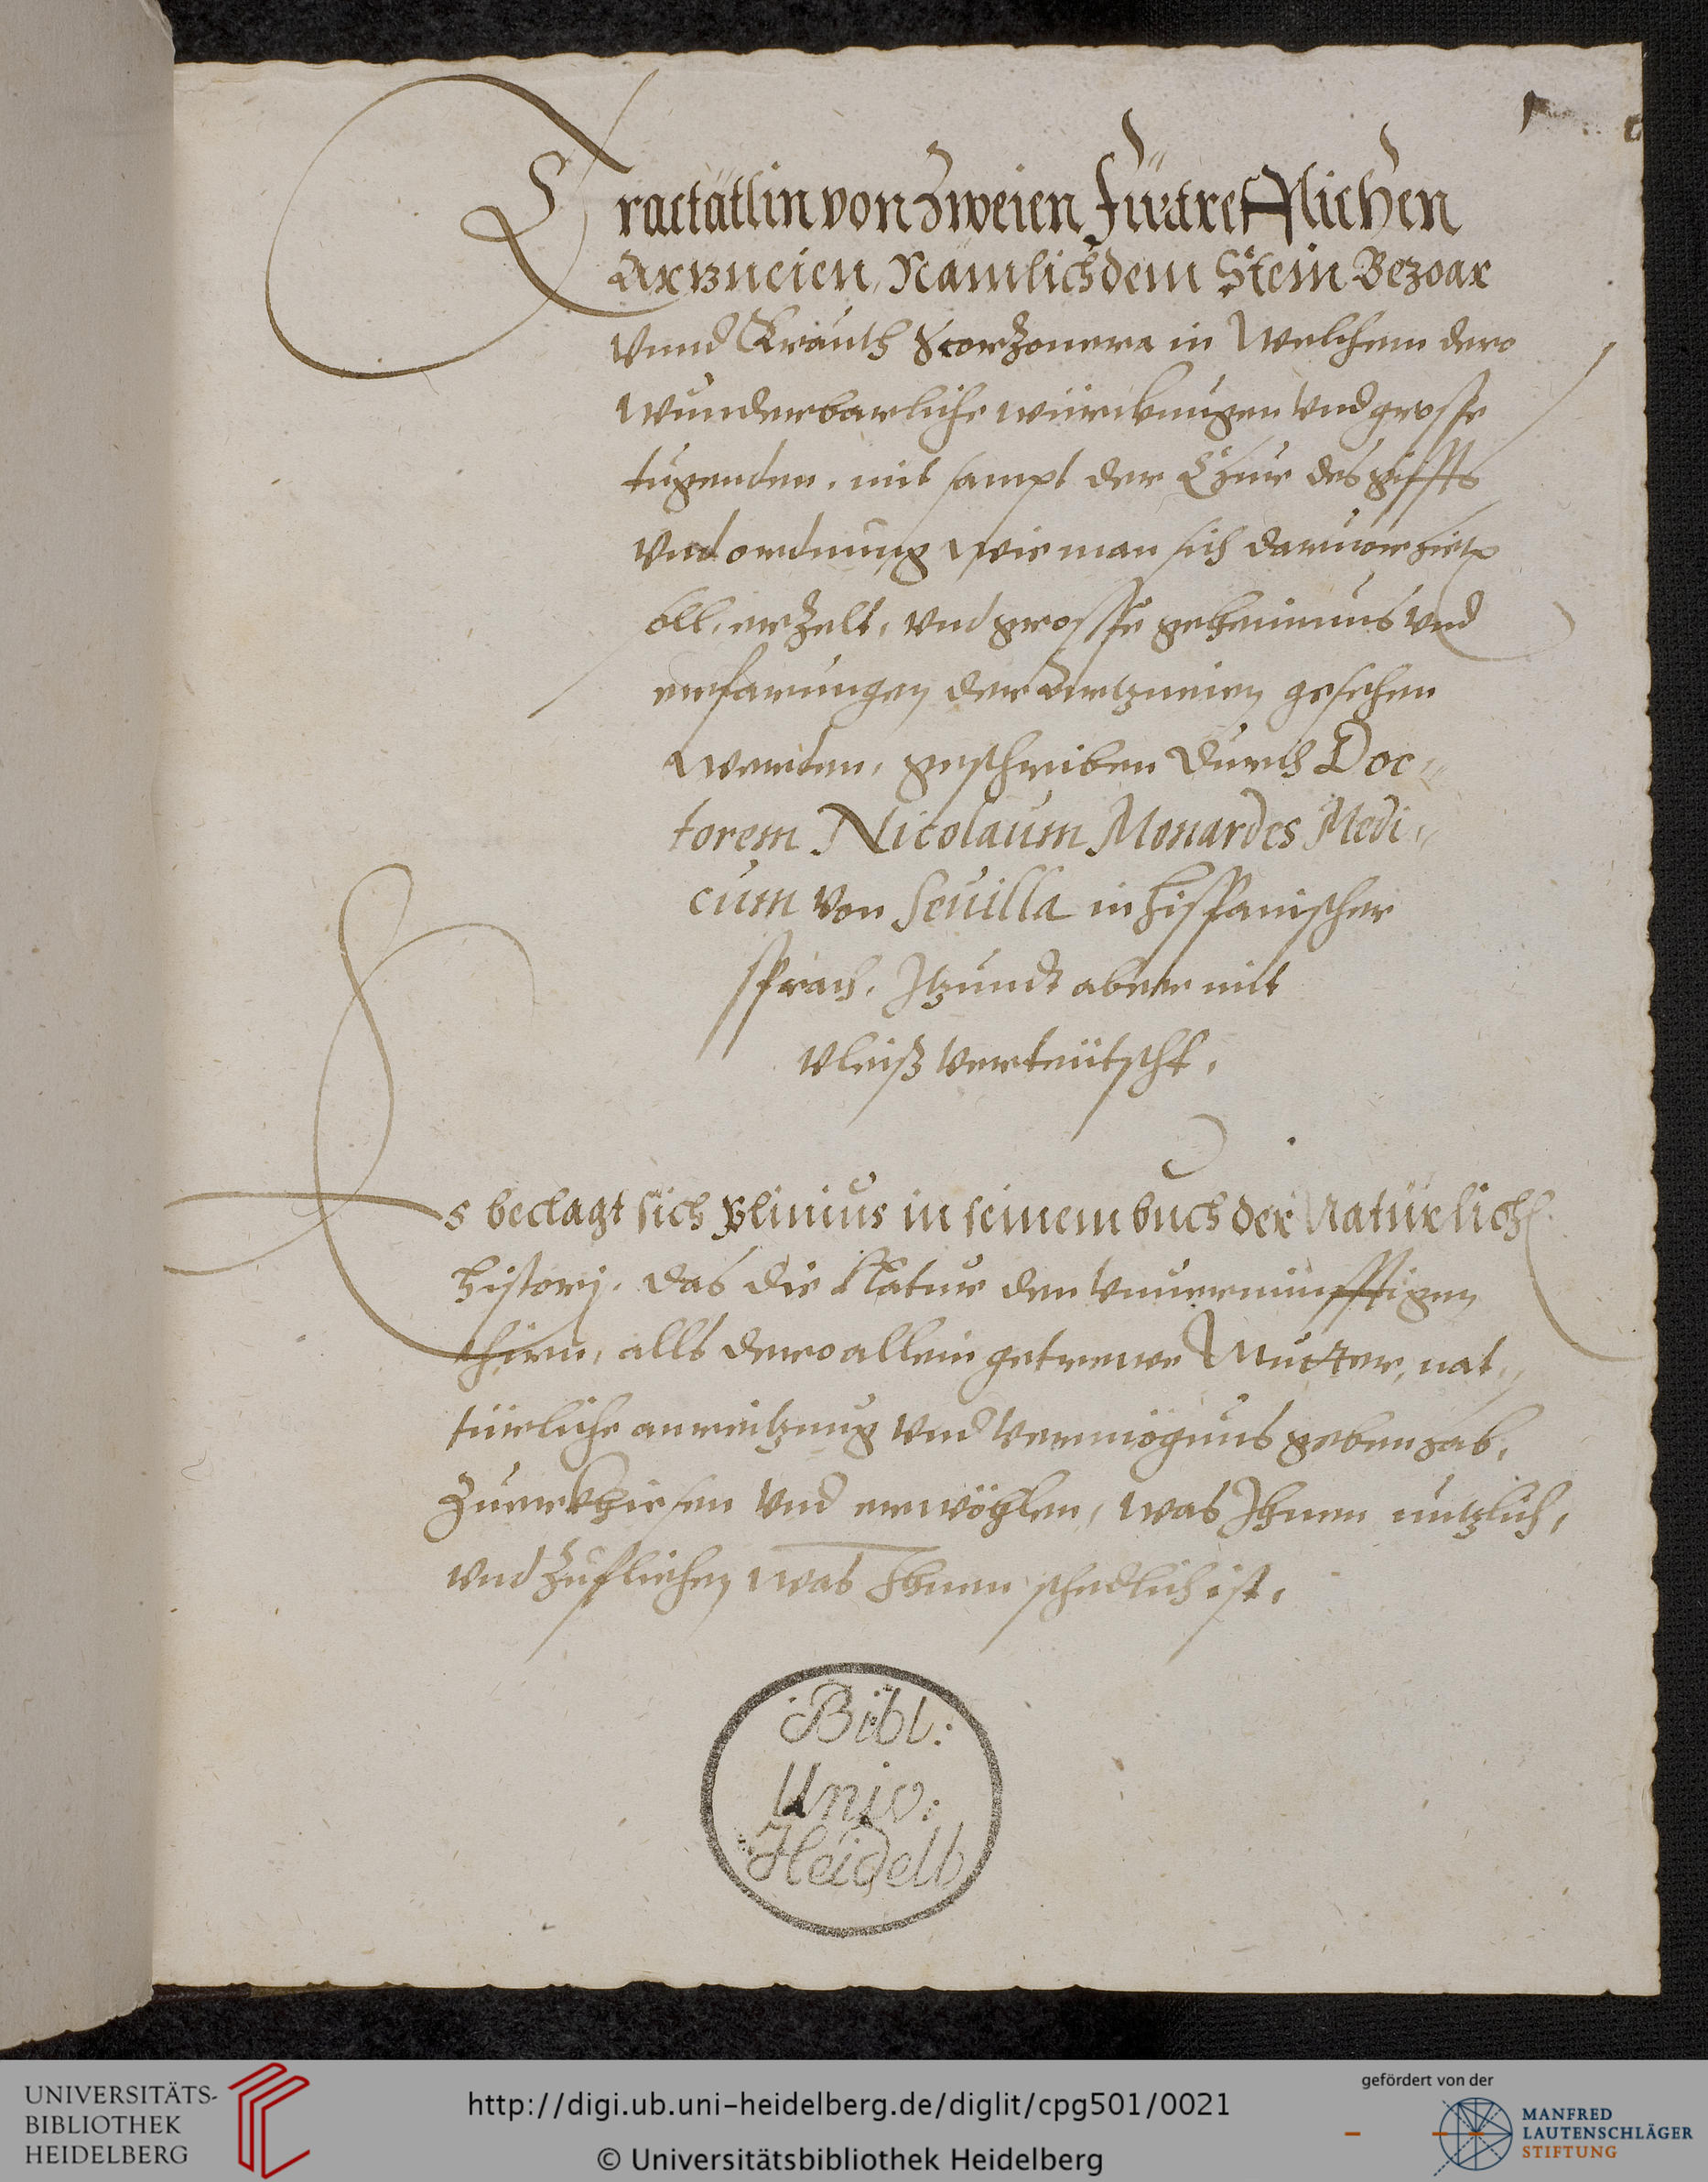 Tractätlin von Zweien Fürtrefflichen
Artzneien, Nämlich dem Stein Bezoar
vnnd Krauth Scorzonera in Welchem dero
wunderbarliche würckungen vnd grosse
tugenden, mit sampt der Chur des giffts
vnd ordnung wie man sich daruor
erzelt, vnd grosse geheimnus vnd
erfarungen der Artzneien gesehen
werden, geschriben durch Doc-
torem Nicolaum Monardes Medi-
cum von Seuilla in hispanischer
sprach, Itzundt aber mit
vleiß verteütscht.
Es beclagt sich Plinius in seinem buch der Natürlich
histori, das die Natur den vnuernünfftigen
thirn, alls dero allein getrewe Mutter, nat-
türliche anreitzung vnd vermögnus geben hab,
zuerkhiesen vnd erwöhlen, was Ihnen nutzlich,
vnd zuflichen was Ihnen schedlich ist.
Bibl:
Univ:
Heidelb
UNIVERSITÄTS-
BIBLIOTHEK
HEIDELBERG
http://digi.ub.uni-heidelberg.de/diglit/cpg501/0021
© Universitätsbibliothek Heidelberg
gefördert von der
MANFRED
LAUTENSCHLÄGER
STIFTUNG